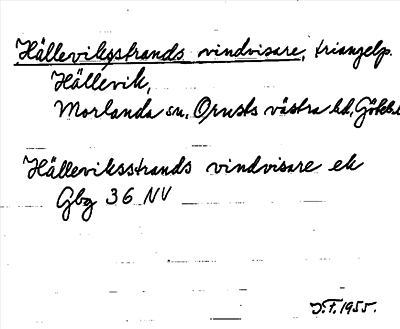 Hälleviksstrands vindvisare, triangelp.
Hällevik,
Morlanda sn, Orusts västra hd, Göteb.
Hälleviksstrands vindvisare ek
Gbg 36 NV
J.F. 1955.